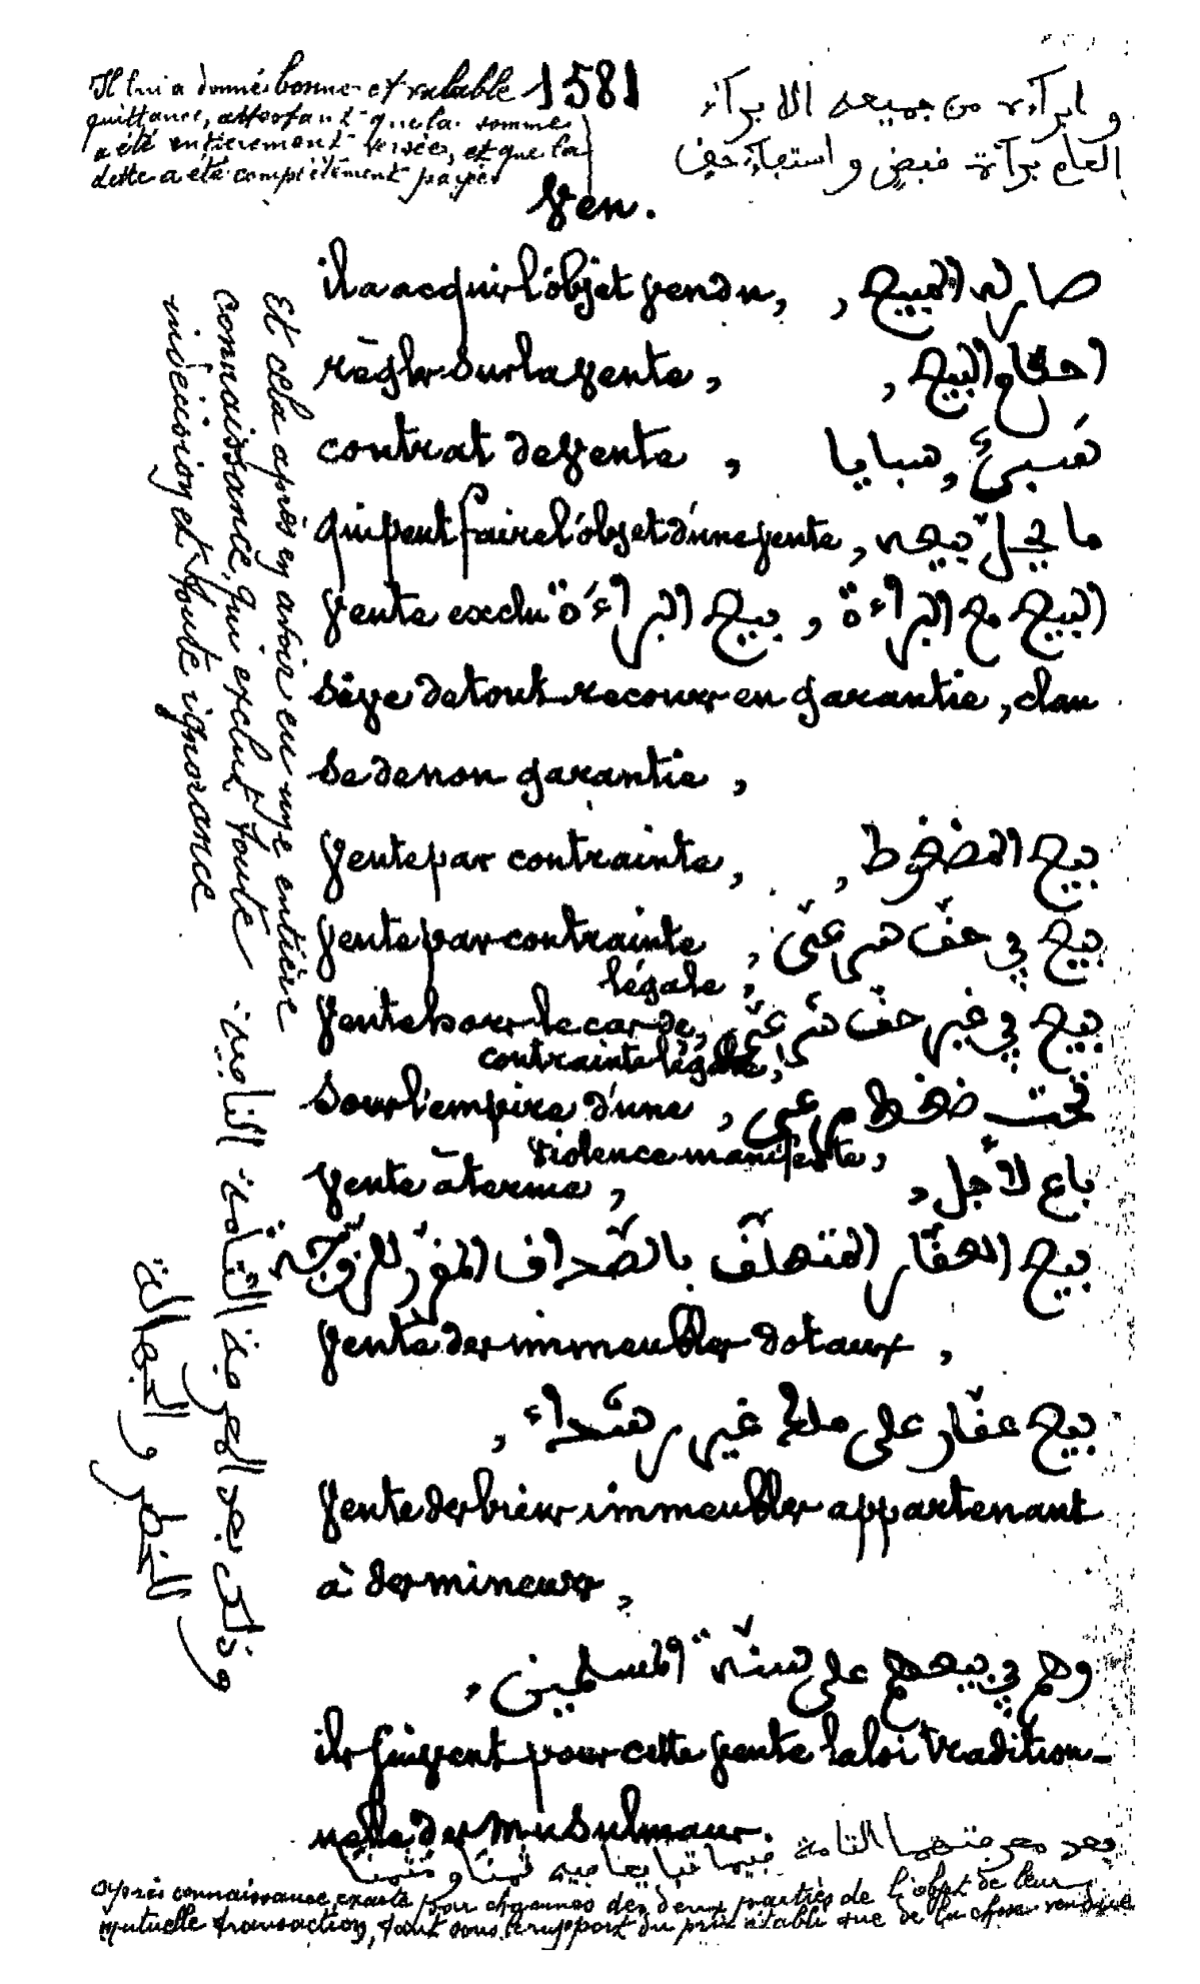 Il lui a donné bonne et valable
quittance, attestant que la somme
a été entièrement versée, et que la
dette a été complètement payée
1581
و ابرآءه من جميعه الابرآء
العام برآءة فبض و استيعآء حف
Ven.
il a acquis l'objet vendu, صار له المبيع,
règles sur la vente, احكام البيع,
contrat de vente,
qui peut faire l'objet d'une vente, ما يحلّ بيعه
البيع مع البراءة, بيع البراءة vente exclu
sive de tout recours en garantie, clau
se de non garantie,
vente par contrainte, بيع المضغوط,
vente par contrainte légale, بيع في حفّ شرعيّ,
vente hors le cas de contrainte légale, بيع في غير حفّ شرعيّ,
sous l'empire d'une violence manifeste, تحت ضغط
vente à terme, باع لأجل,
بيع العفار المتعلّف بالصّداف المفرّر للزّوجة
vente des immeubles dotaux,
بيع عفّار على ملك غير رشداء,
vente des biens immeubles appartenant
à des mineurs,
وهم في بيعهم على سنّة المسلمين,
ils suivent pour cette vente la loi tradition-
nelle des musulmans.
بعد معرفتهما التامة فيما تبايعا فيه ثمنًا و مثمنًا
Après connaissance exacte pour chacunes des deux parties de l'objet de leur
mutuelle transaction, tant sous le rapport du prix établi que de la chose vendue
Et cela après en avoir eu une entière
connaissance, qui exclut toute
indécision et toute ignorance
و ذلك بعد المعرفة التّامة النافية
للخطر و الجهالة